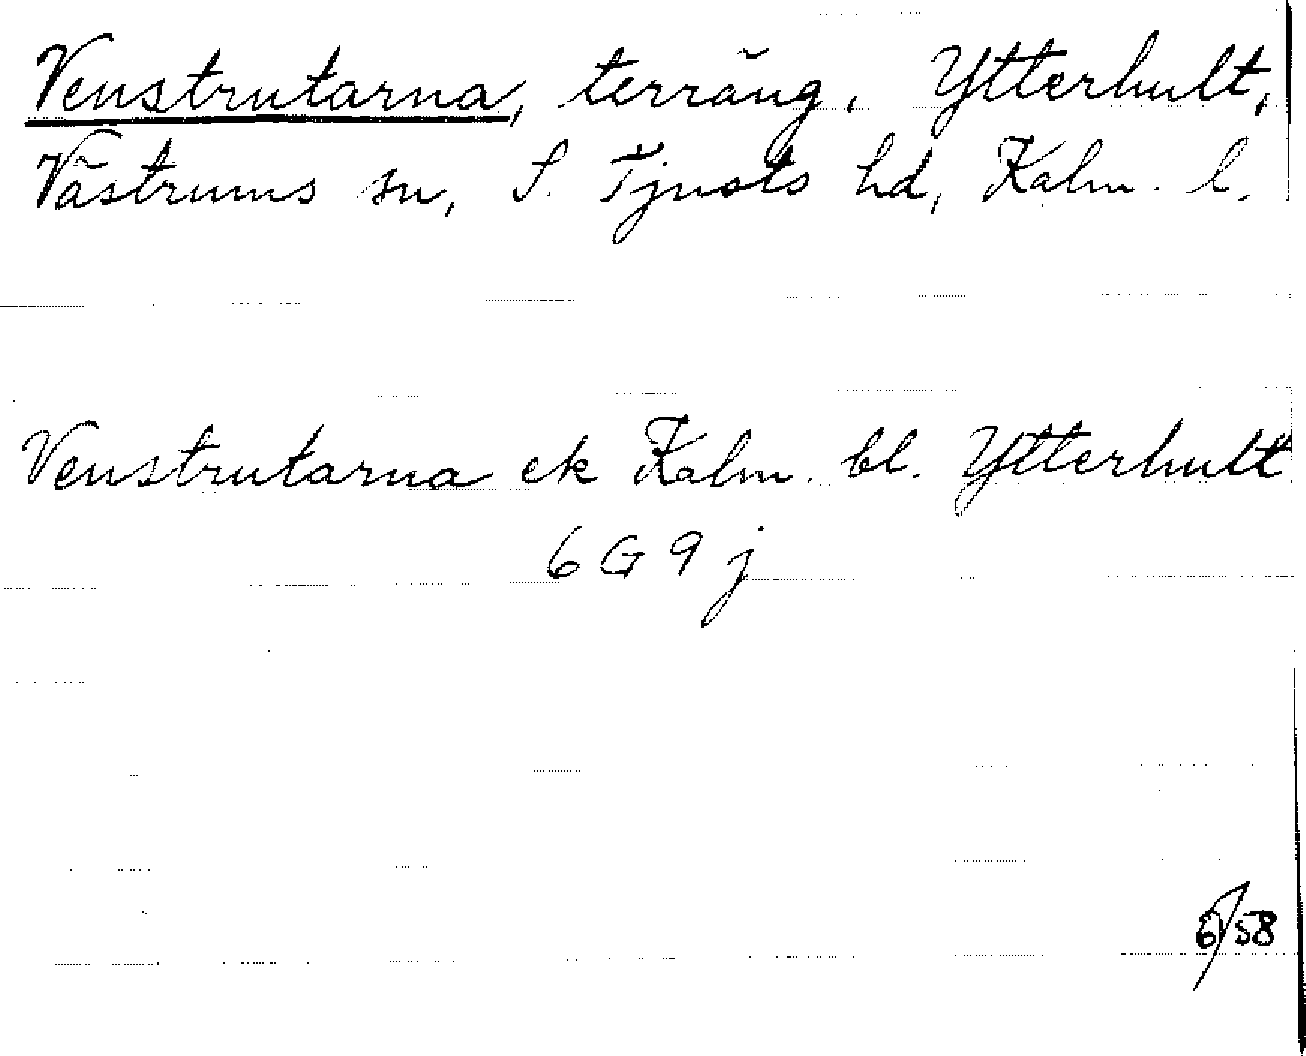 Venstrutarna, terräng, Ytterhult,
Västrums sn, S. Tjusts hd, Kalm. l.
Venstrutarna ek Kalm. bl. Ytterhult
6 G 9 j
6/58